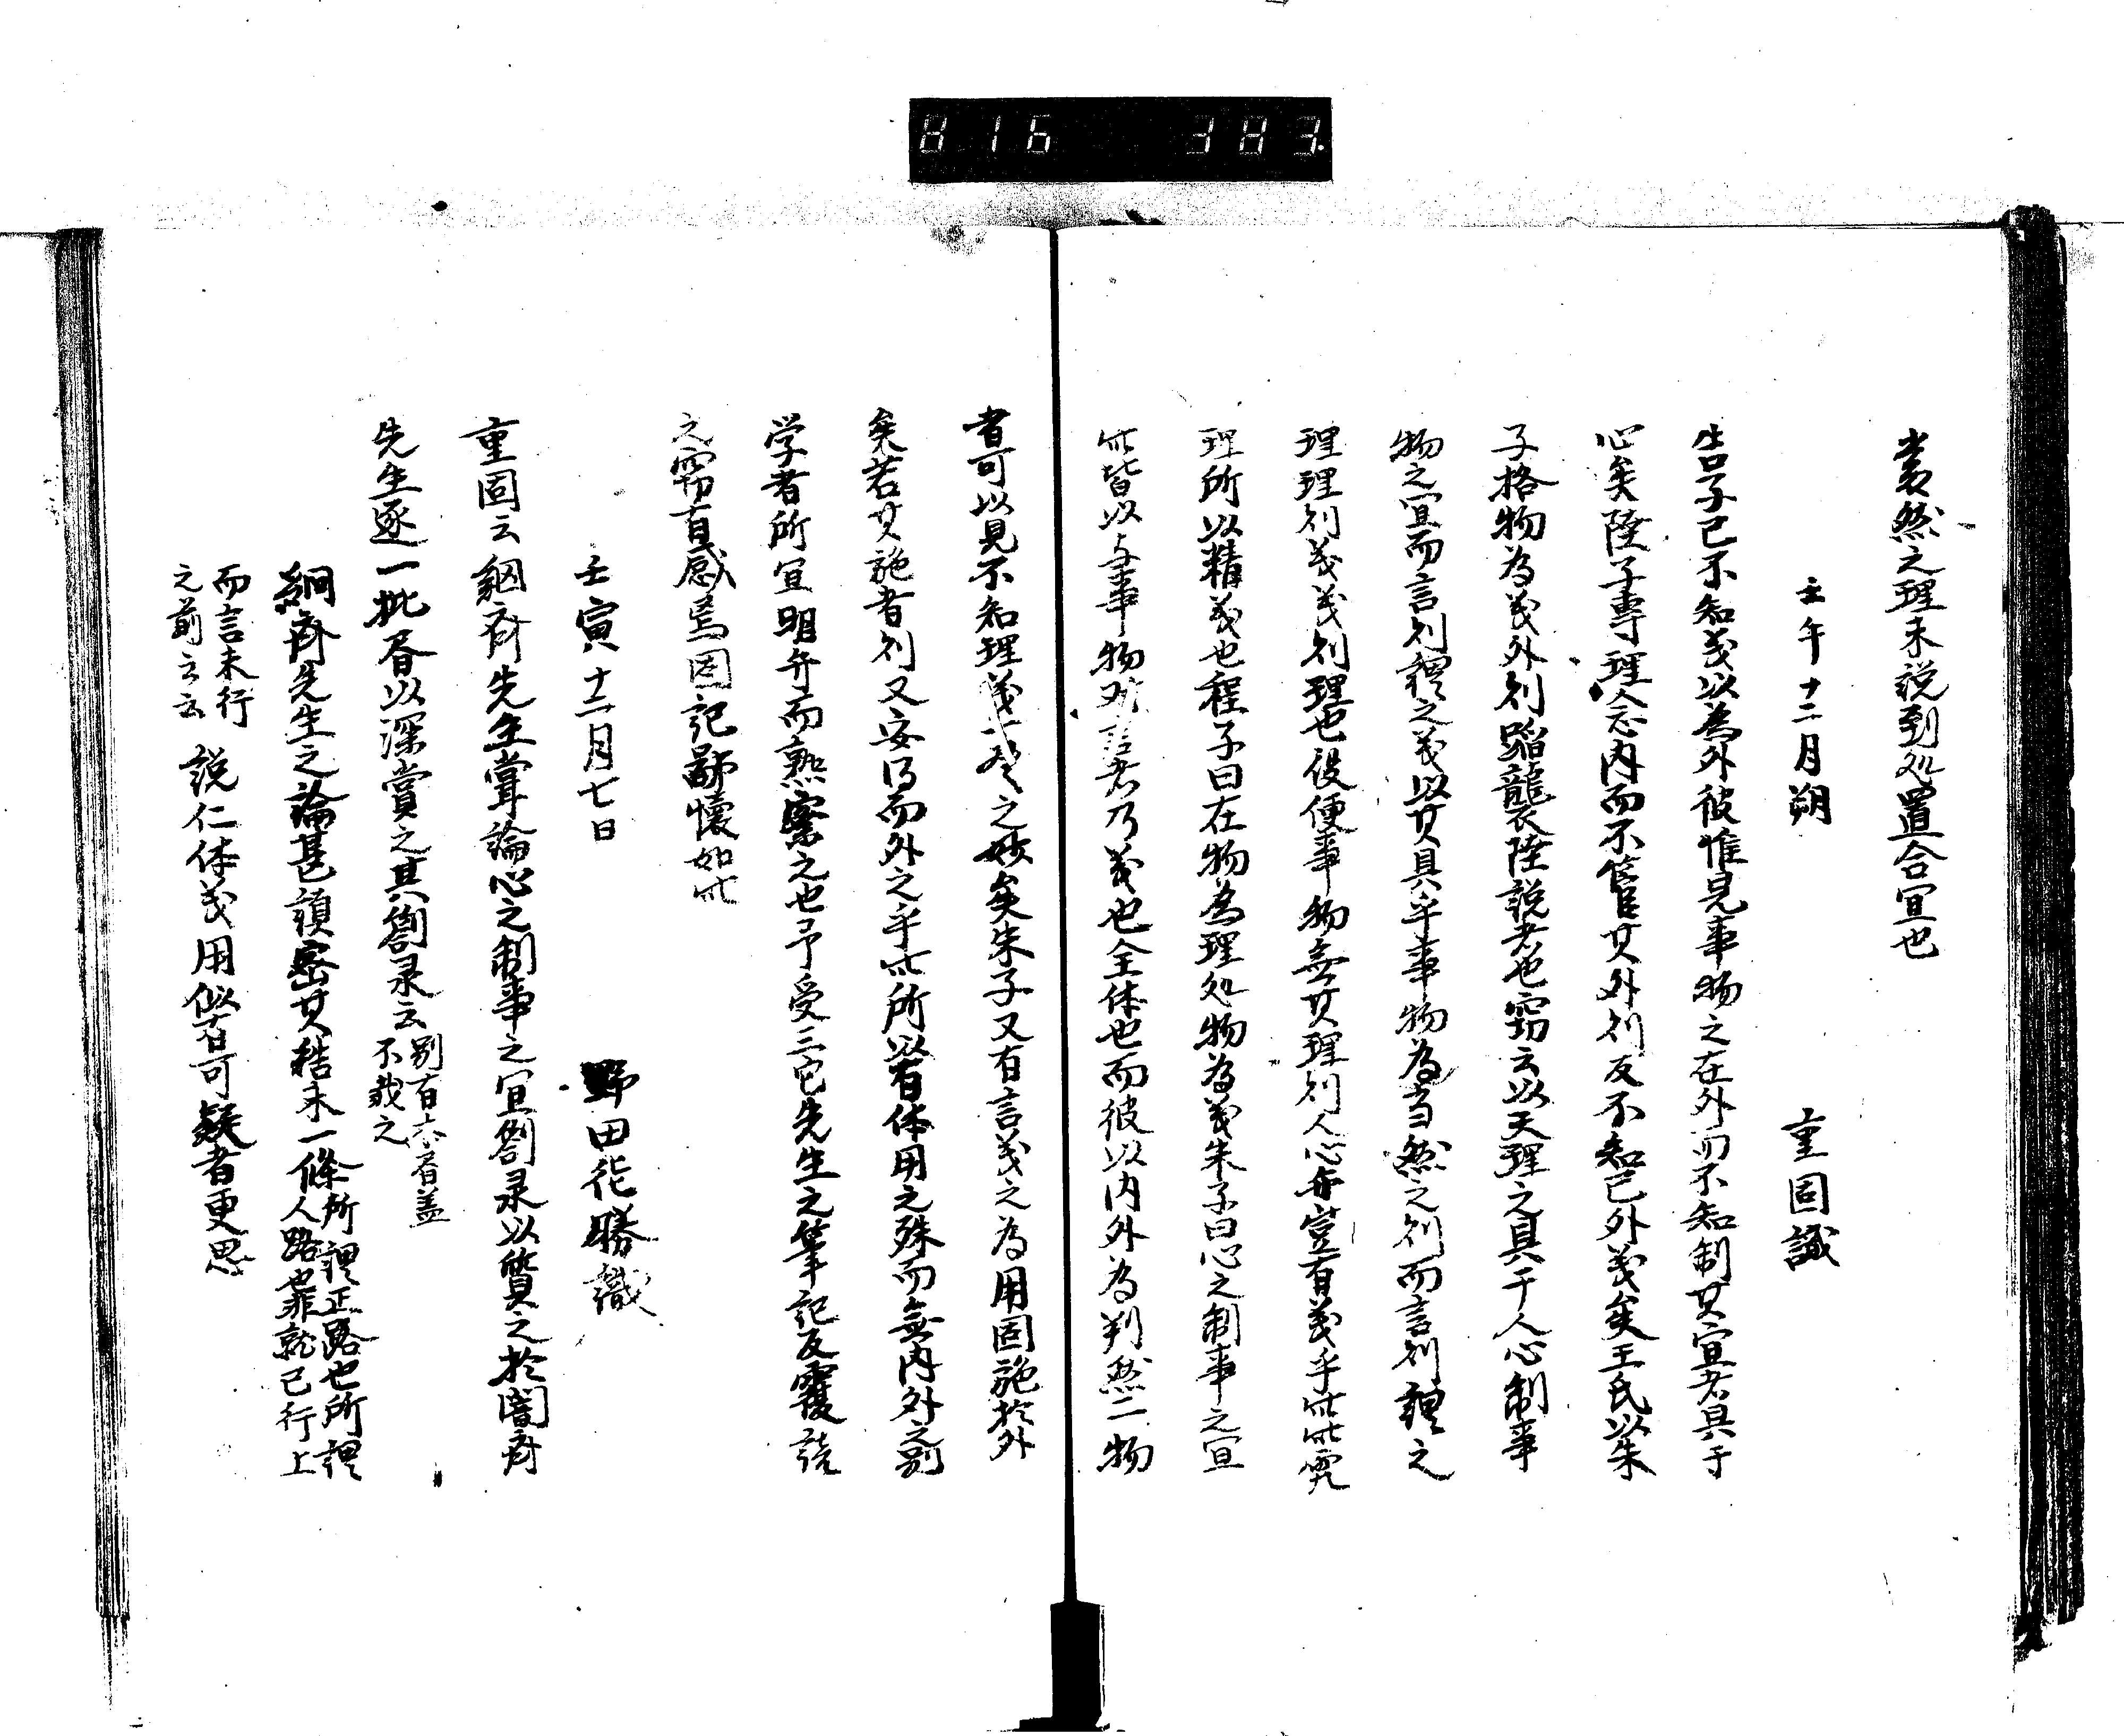 816 383.
当然之理未説到処置合宜也
壬午十二月朔 重固識
告子已不知義以為外彼惟見事物之在外而不知制其宜者具于
心矣陸子専理会内而不管其外則反不知己外義矣王氏以朱
子格物為義外則蹈襲陸説者也窃云以天理之具于人心制事
物之宜而言則謂之義以其具乎事物為当然之則而言則謂之
理理則義義則理也仮使事物無其理則人心亦豈有義乎此此窮
理所以精義也程子曰在物為理処物為義朱子曰心之制事之宜
此皆以与事物対言者乃義也全体也而彼以内外為判然二物
者可以見不知理義一致之妙矣朱子又有言義之為用固施於外
矣若其施者則又安得而外之乎此所以有体用之殊而無内外之別
学者所宜明弁而熟察之也予受三宅先生之筆記反覆読
之窃有感焉因記鄙懐如此
壬寅十二月七日 野田 勝識
重固云絅斎先生嘗論心之制事之宜劄录以質之於闇斎
先生逐一批 以深賞之其劄录云
別有 盖
不載之
絅斎先生之論甚 密其 末一條
所謂正路也所謂
人路也 就已行上
而言未行
之前云云
説仁体義用似有可疑者更思